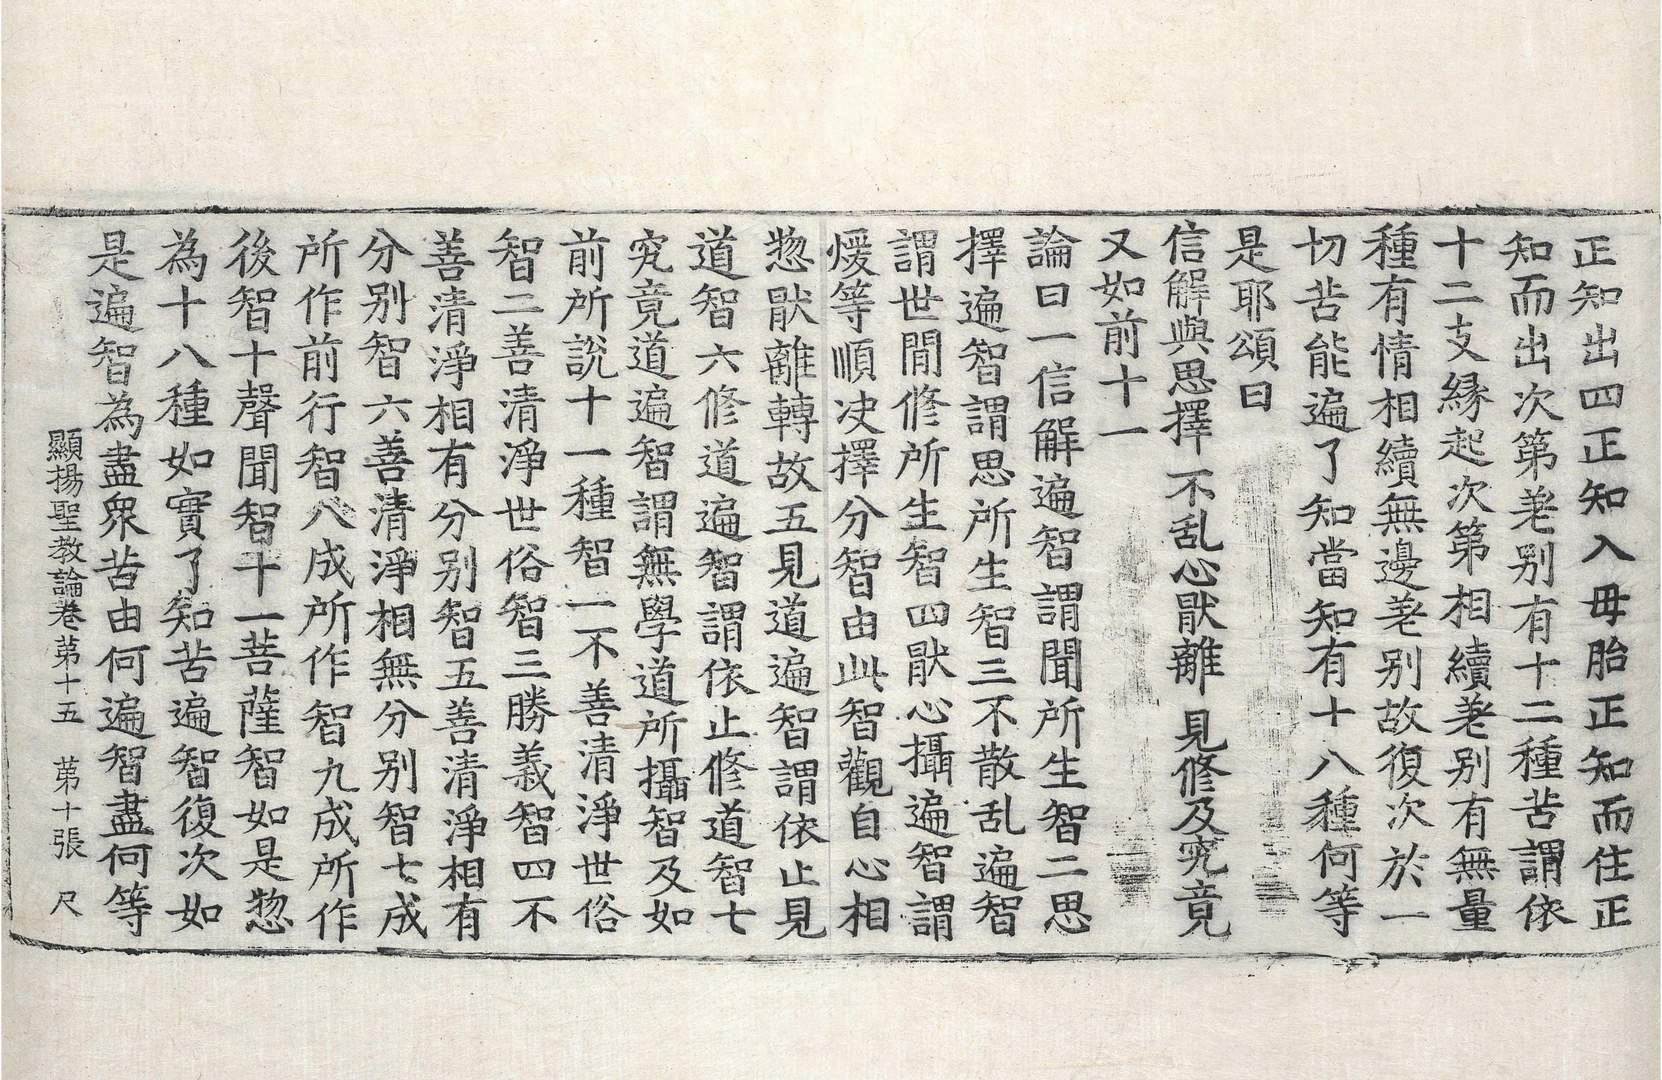 正知出四正知入母胎正知而住正
知而出次第差别有十二種苦謂依
十二支縁起次第相續差别有無量
種有情相續無邊差别故復次於一
切苦能遍了知當知有十八種何等
是耶頌曰
信解與思擇 不乱心猒離 見修及究竟
又如前十一
論曰一信解遍智謂聞所生智二思
擇遍智謂思所生智三不散乱遍智
謂世間修所生智四猒心攝遍智謂
煖等順决擇分智由此智觀自心相
惣猒離轉故五見道遍智謂依止見
道智六修道遍智謂依止修道智七
究竟道遍智謂無學道所攝智及如
前所說十一種智一不善清淨世俗
智二善清淨世俗智三勝義智四不
善清淨相有分别智五善清淨相有
分别智六善清淨相無分别智七成
所作前行智八成所作智九成所作
後智十聲聞智十一菩薩智如是惣
為十八種如實了知苦遍智復次如
是遍智為盡衆苦由何遍智盡何等
顯揚聖教論卷第十五 第十張 尺